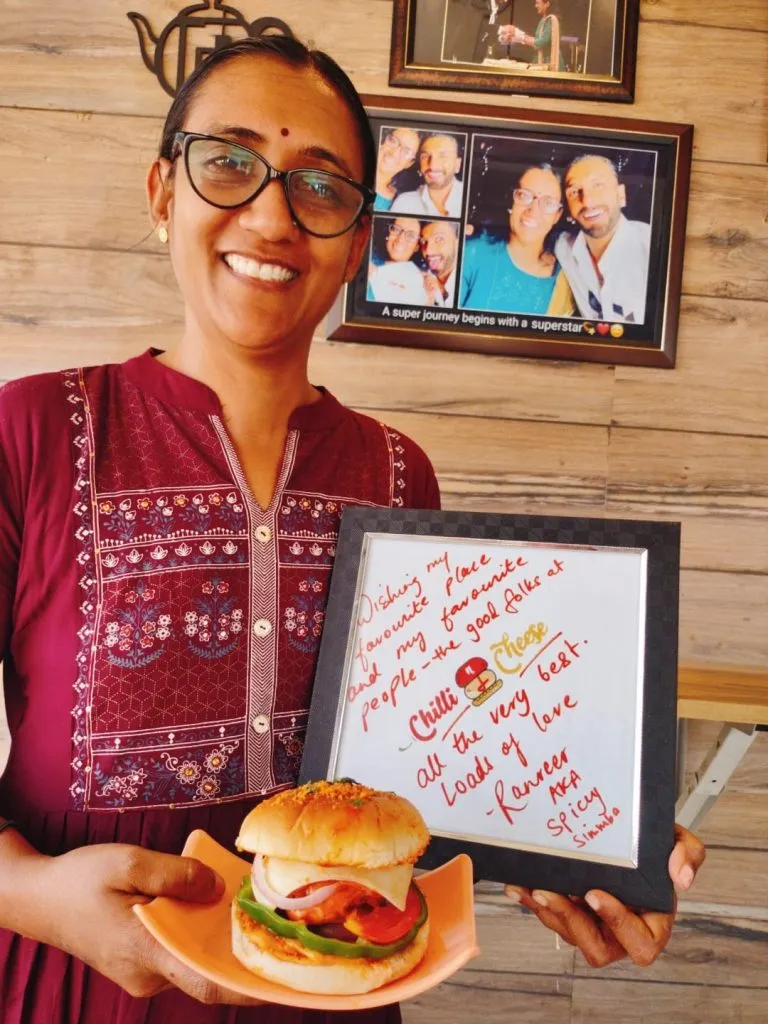 A super journey begins with a superstar💫❤️😊
Wishing my
favourite place
and my favourite
people - the good folks at
Chilli Cheese
all the very best.
Loads of love
- Ranveer
AKA
Spicyy
Simmba